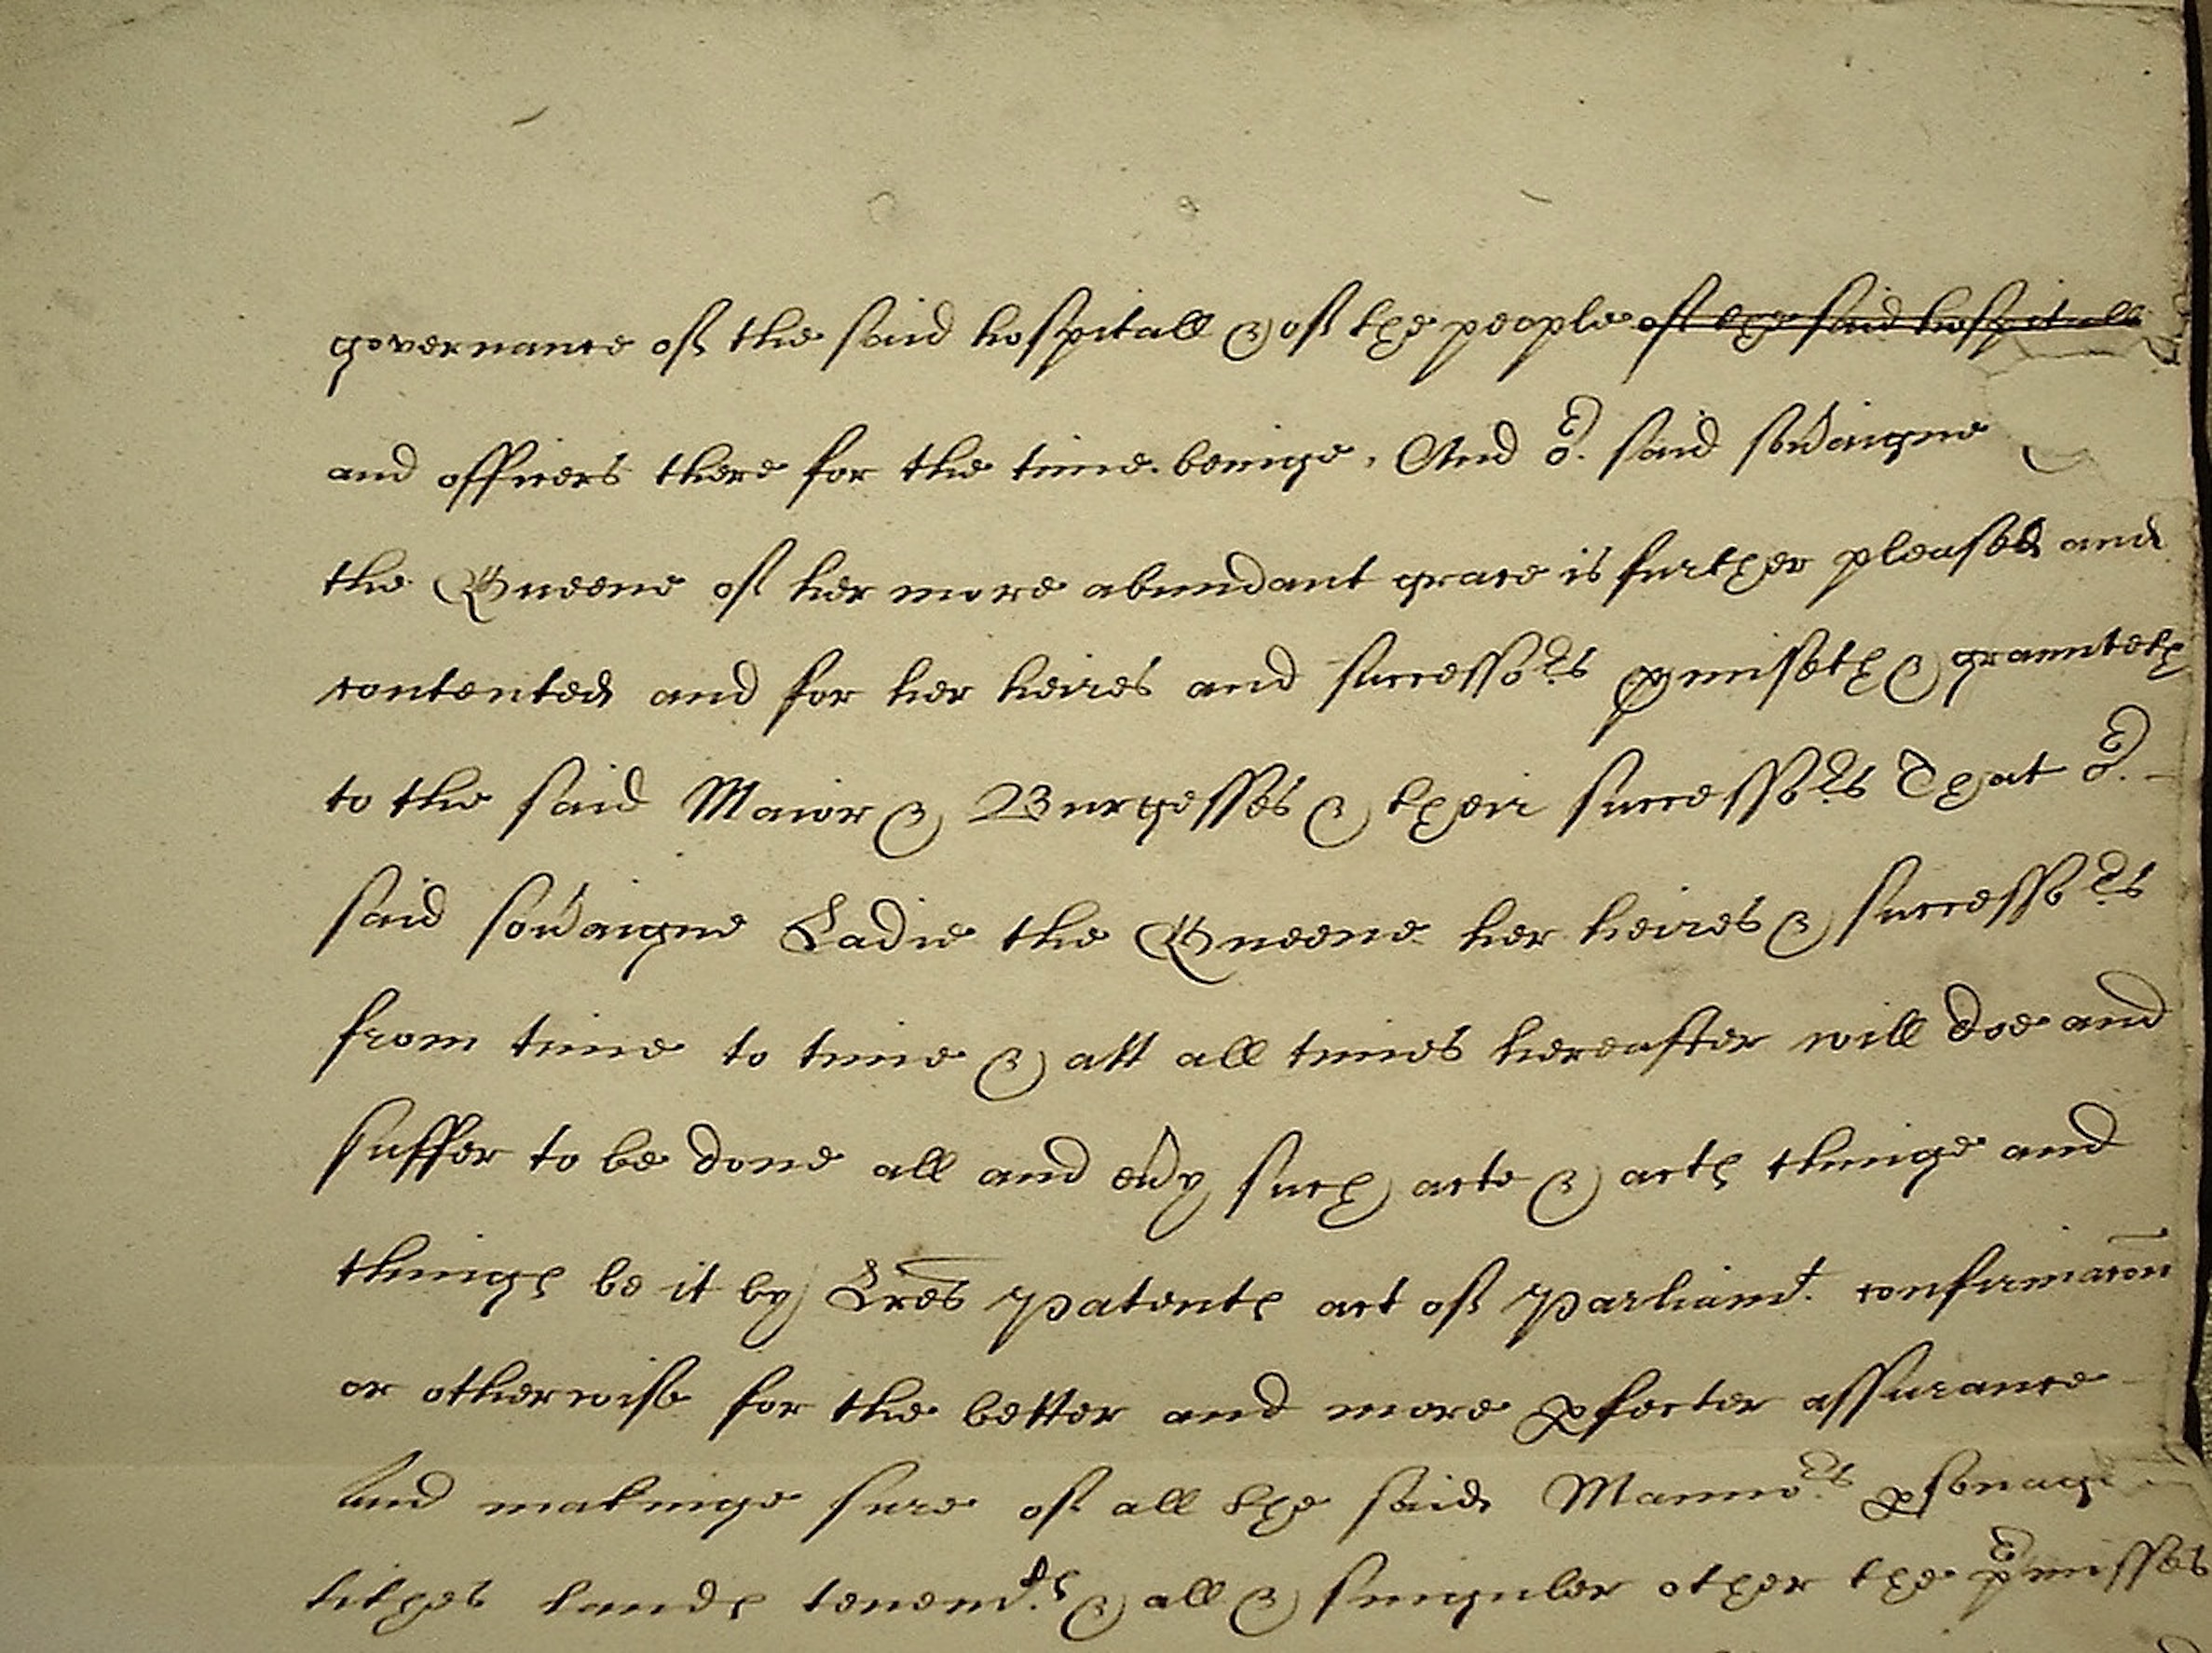 governance of the said hospitall & of the people of the said hospitall
and officers there for the time beinge, And oʳ. said sov'aigne
the Queene of her more abundant grace is further pleased and
contented and for her heires and successoʳˢ p'miseth & graunteth
to the said Maior & Burgesses & their successoʳˢ That oʳ.
said sov'aigne Ladie the Queene her heires & successoʳˢ
from time to time & att all times hereafter will doe and
suffer to be done all and ev'y such acte & actꝭ thinge and
thingꝭ be it by Lr̃es Patentꝭ act of Parliamᵗ. confirmac̃on
or otherwise for the better and more ꝑfecter assurance
And makinge sure of all the said Mannoʳˢ ꝑsonage
tithes landꝭ tenemᵗꝭ & all & singuler other the p'misses